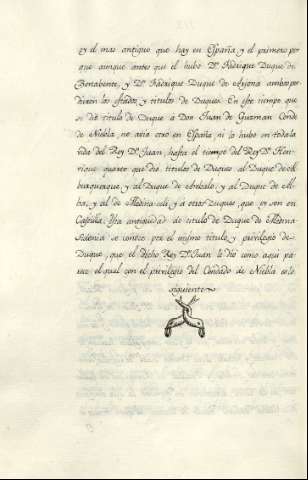 oy el mas antiguo que hay en España, y el primero por
que aunque antes que él hubo Dn. Fadrique Duque de
Benabente, y Dn. Fadrique Duque de Arjona ambos per
dieron los estados, y titulos de Duques. En este tiempo que
se dió titulo de Duque à Don Juan de Guzman Conde
de Niebla, no avia otro en España, ni lo hubo en toda la
vida del Rey Dn. Juan, hasta el tiempo del Rey Dn. Hen-
rique quarto que dió titulos de Duques al Duque de Al
burquerque, y al Duque de Arebalo, y al Duque de Al-
ba, y al de Medina-celi, y à otros Duques, que ya son en
Castilla. Esta antiguedad de titulo de Duque de Medina-
Sidonia se conoce por el mismo titulo, y privilegio de
Duque, que el dicho Rey Dn. Juan le dió como aqui pa-
rece el qual con el privilegio del Condado de Niebla es el
siguiente